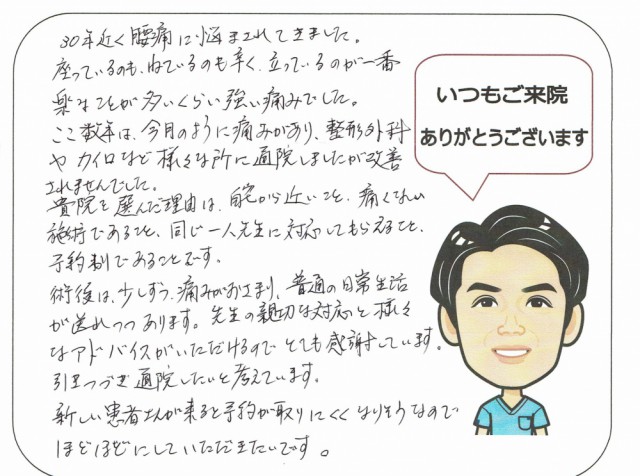 30年近く腰痛に悩まされてきました。
座っているのも、ねているのも辛く、立っているのが一番
楽なことが多いくらい強い痛みでした。
ここ数年は、今月のように痛みがあり、整形外科
やカイロなど様々な所に通院しましたが改善
されませんでした。
貴院を選んだ理由は、自宅から近いこと、痛くない
施術であること、同じ一人先生に対応してもらえること、
予約制であることです。
術後は、少しずつ痛みがおさまり、普通の日常生活
が送れつつあります。先生の親切な対応と様々
なアドバイスがいただけるのでとても感謝しています。
引きつづき通院したいと考えています。
新しい患者さんが来ると予約が取りにくくなりそうなので
ほどほどにしていただきたいです。
いつもご来院
ありがとうございます